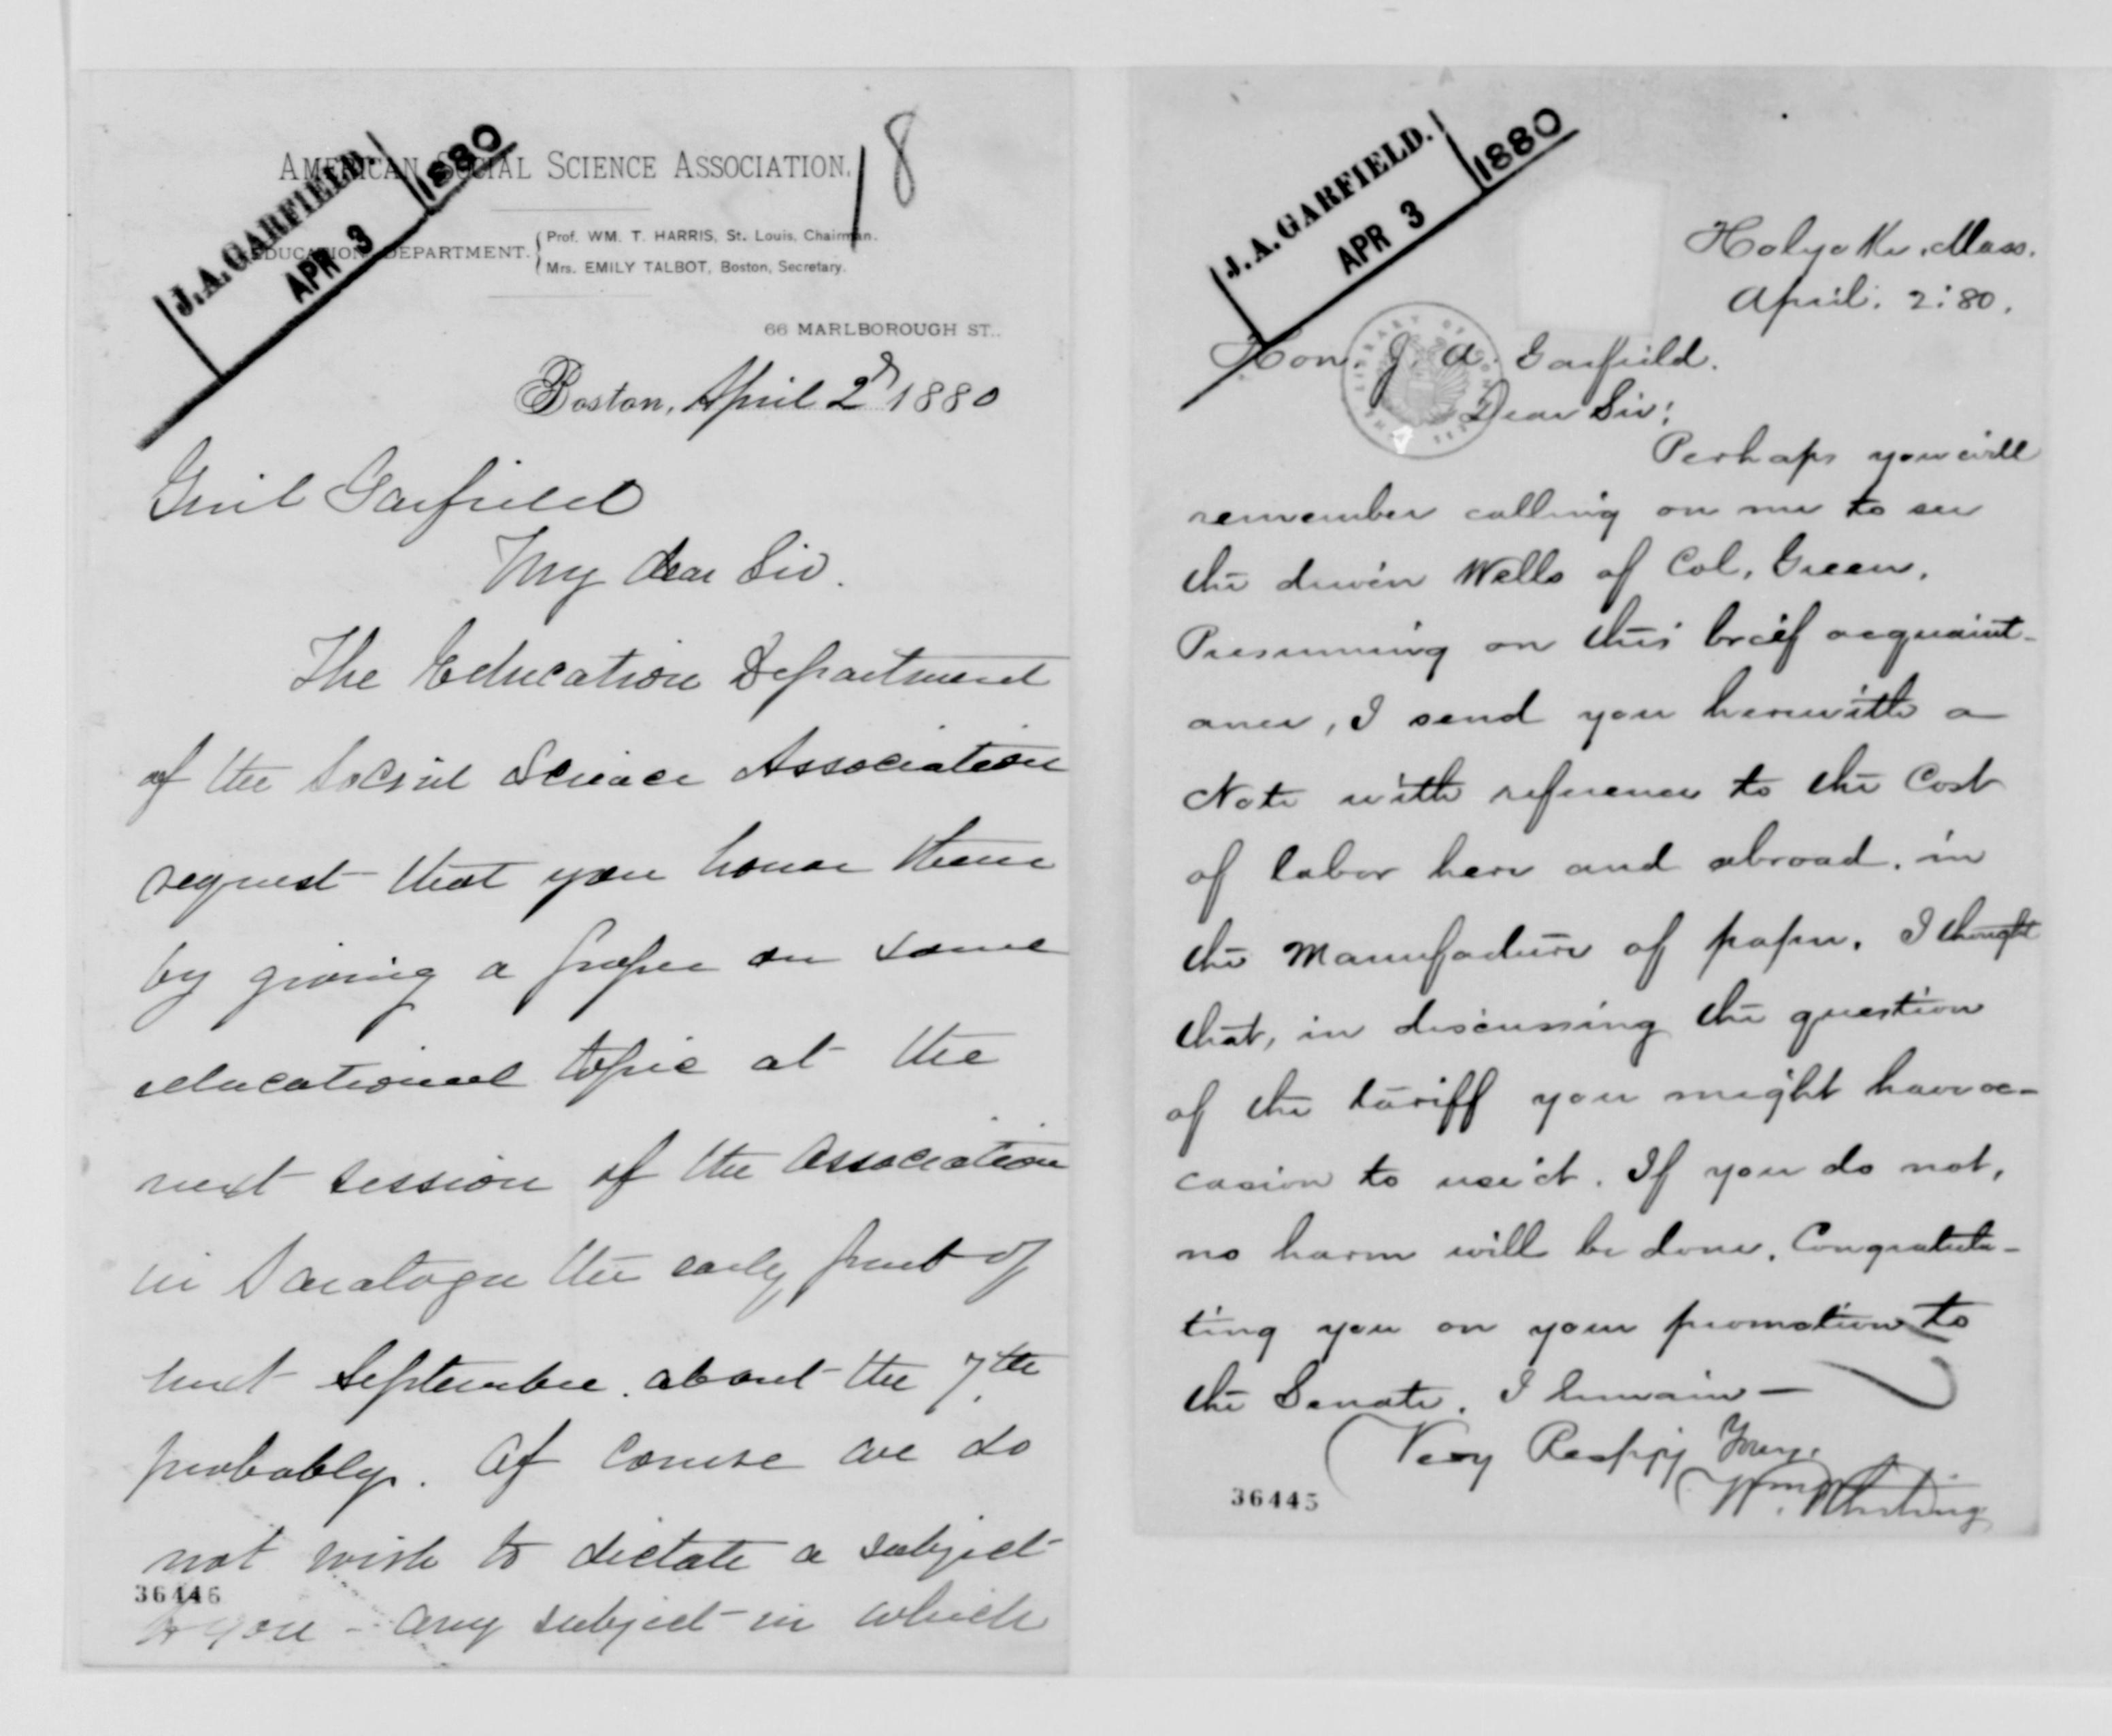 AMERICAN SOCIAL SCIENCE ASSOCIATION.
18
J. A. GARFIELD.
APR 3
1880
EDUCATION DEPARTMENT.
Prof. WM. T. HARRIS, St. Louis, Chairman.
Mrs. EMILY TALBOT, Boston, Secretary.
66 MARLBOROUGH ST.
Boston, April 2d 1880
Genl Garfield
My dear Sir.
The Education Department
of the Social Science Association
request that you honor them
by giving a paper on some
educational topic at the
next session of the Association
in Saratoga the early part of
next September. about the 7th
probably. Of course we do
not wish to dictate a subject
36446
to you - any subject in which
J. A. GARFIELD.
APR 3
1880
Holyoke, Mass.
April. 2: 80.
Hon. J. A. Garfield.
Dear Sir:
Perhaps you will
remember calling on me to see
the driven Wells of Col. Green.
Presuming on this brief acquaint-
ance, I send you herewith a
Note with reference to the Cost
of labor here and abroad. in
the Manufacture of paper. I thought
that, in discussing the question
of the tariff you might have oc-
casion to use it. If you do not,
no harm will be done. Congratula-
ting you on your promotion to
the Senate. I remain —
Very Respfy Yrs.
Wm. Whiting
36445